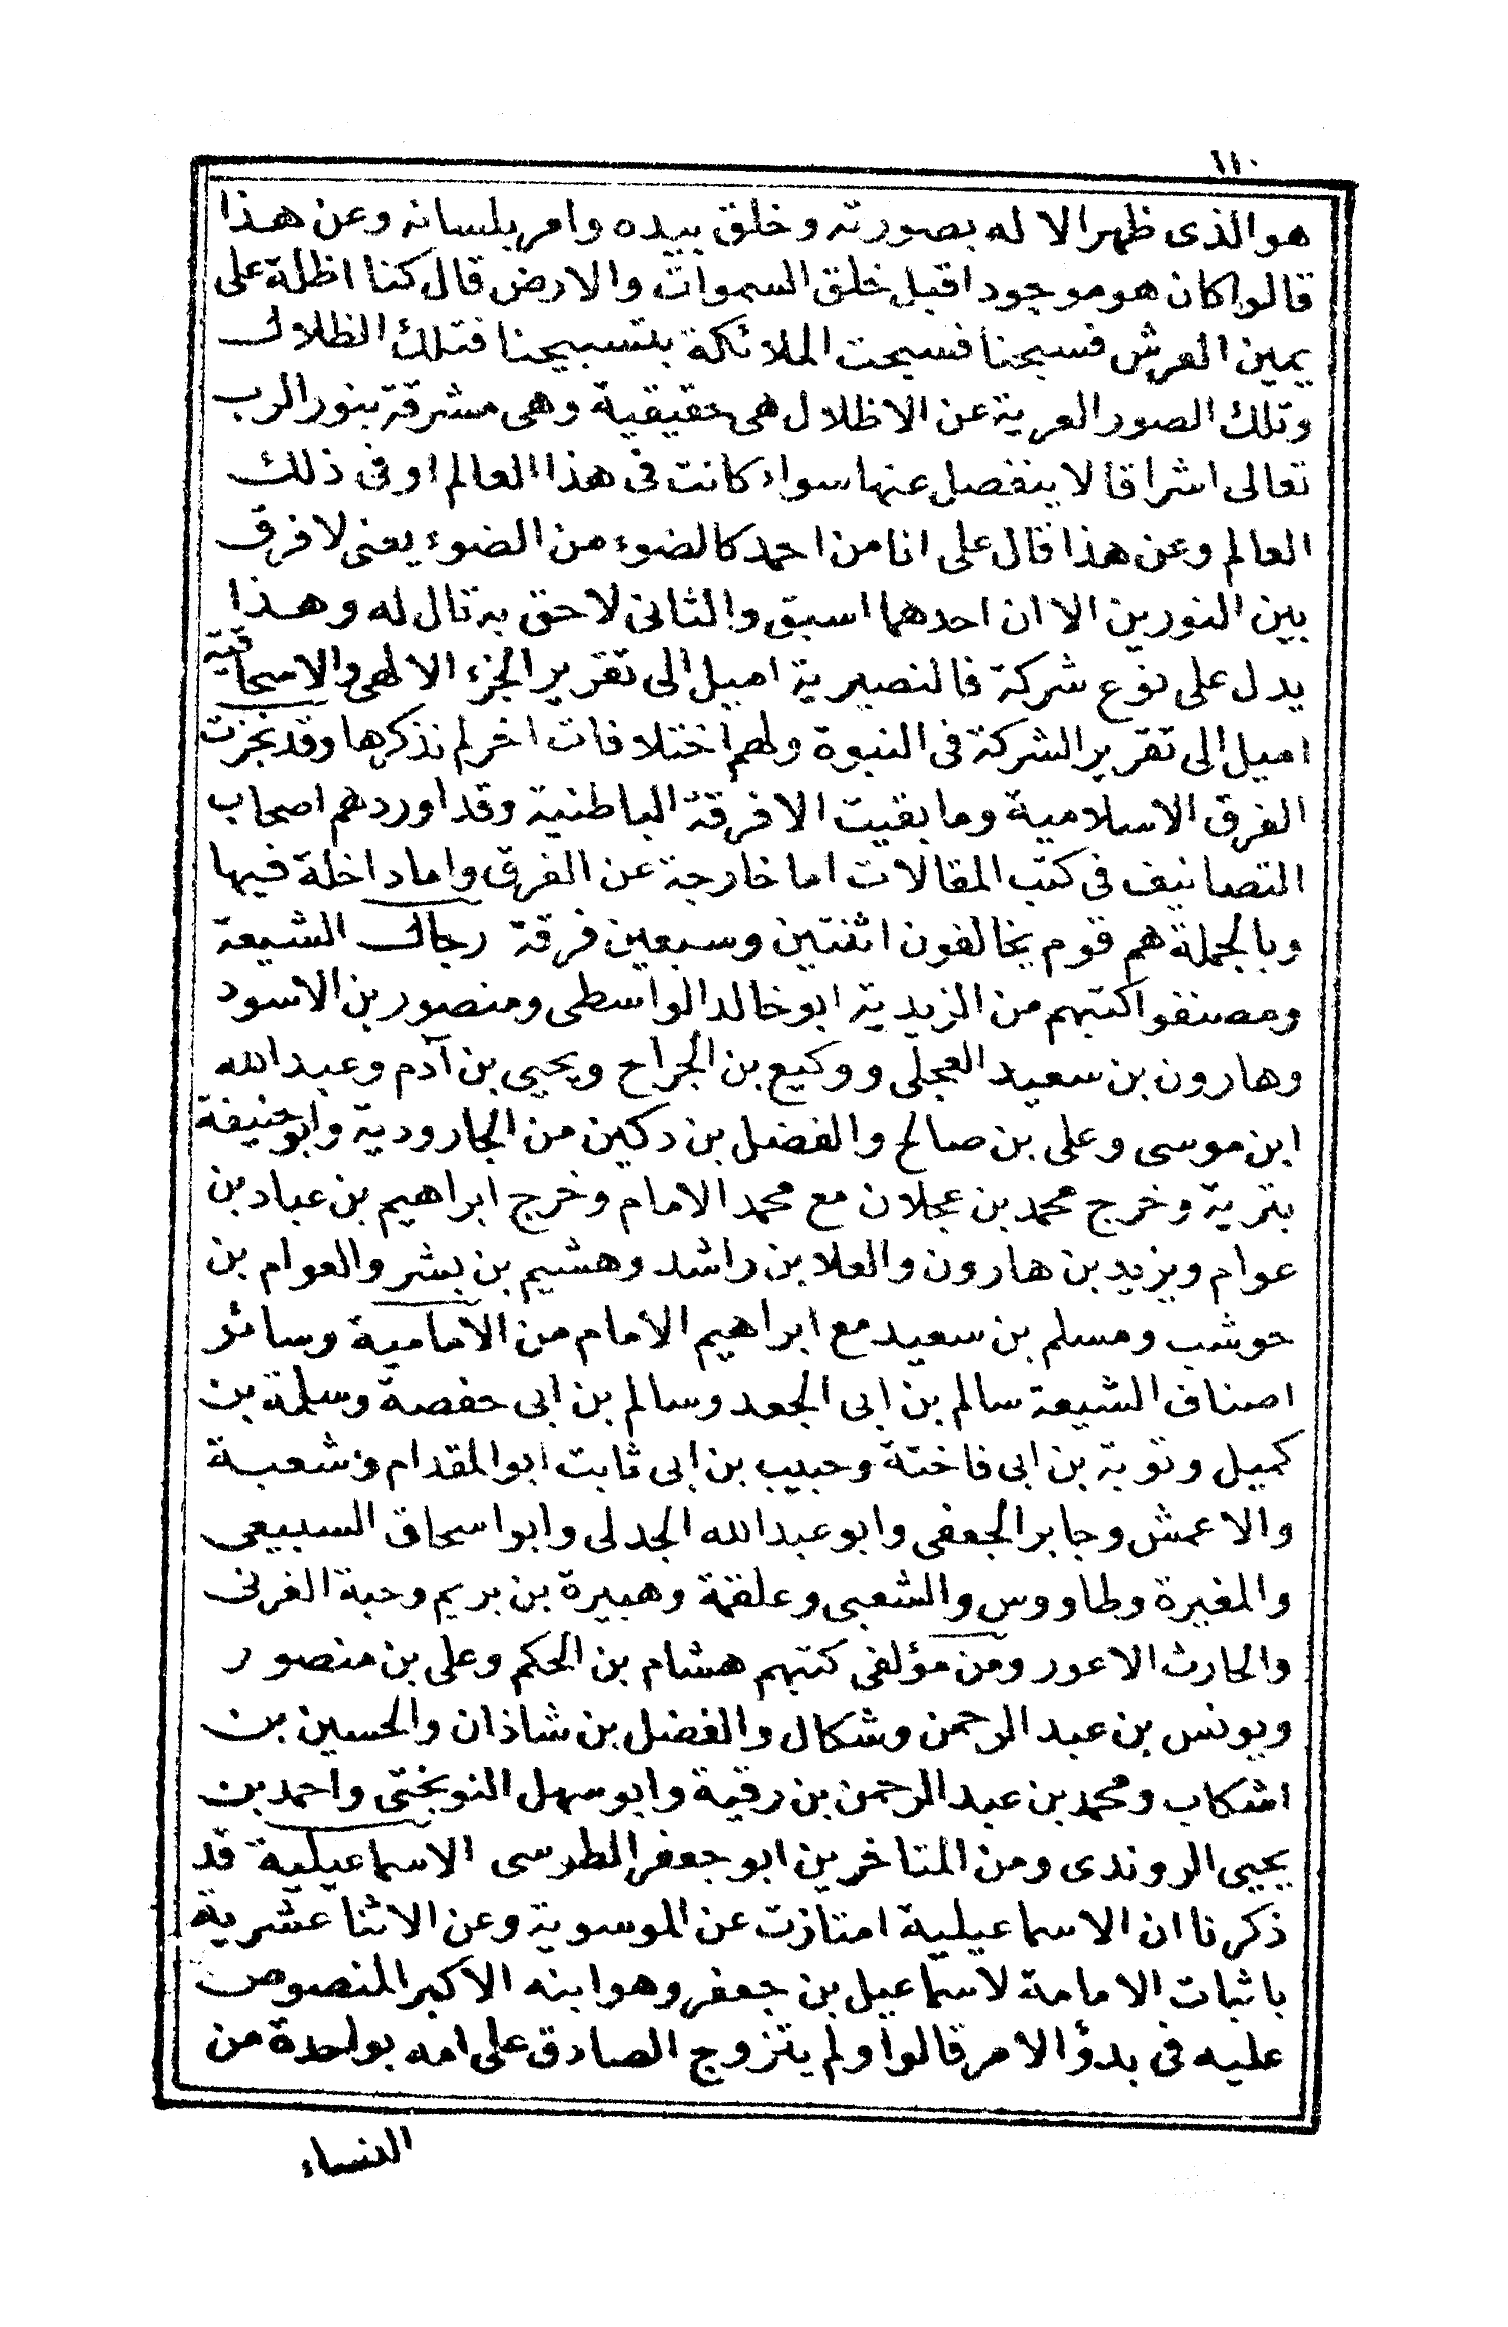 ١١٠
هو الذى ظهر الا له بصورته وخلق بيده وامر بلسانه وعن هذا
قالوا كان هو موجودا قبل خلق السموات والارض قال كنا اظلة على
يمين العرش فسبحنا فسبحت الملائكة بتسبيحنا فتلك الظلال
وتلك الصور العرية عن الاظلال هى حقيقية وهى مشرقة بنور الرب
تعالى اشراقا لا ينفصل عنها سواء كانت فى هذا العالم او فى ذلك
العالم وعن هذا قال على انا من احمد كالضوء من الضوء يعنى لا فرق
بين النورين الا ان احدهما اسبق والثانى لاحق به تال له وهذا
يدل على نوع شركة فالنصيرية اميل الى تقرير الجزء الالهى والاسحاقية
اميل الى تقرير الشركة فى النبوة ولهم اختلافات اخر لم نذكرها وقد نجزت
الفرق الاسلامية وما بقيت الا فرقة الباطنية وقد اوردهم اصحاب
التصانيف فى كتب المقالات اما خارجة عن الفرق واما داخلة فيها
وبالجملة هم قوم يخالفون اثنتين وسبعين فرقة رجال الشيعة
ومصنفوا كتبهم من الزيدية ابو خالد الواسطى ومنصور بن الاسود
وهارون بن سعيد العجلى ووكيع بن الجراح ويحيى بن آدم وعبد الله
ابن موسى وعلى بن صالح والفضل بن دكين من الجارودية وابو حنيفة
بترية وخرج محمد بن عجلان مع محمد الامام وخرج ابراهيم بن عباد بن
عوام ويزيد بن هارون والعلا بن راشد وهشيم بن بشر والعوام بن
حوشب ومسلم بن سعيد مع ابراهيم الامام من الامامية وسائر
اصناف الشيعة سالم بن ابى الجعد وسالم بن ابى حفصة وسلمة بن
كميل وتوبة بن ابى فاختة وحبيب بن ابى ثابت ابو المقدام وشعبة
والاعمش وجابر الجعفى وابو عبد الله الجدلى وابو اسحاق السبيعى
والمغيرة وطاووس والشعبى وعلقمة وهبيرة بن بريم وحبة الغرنى
والحارث الاعور ومن مؤلفى كتبهم هشام بن الحكم وعلى بن منصور
ويونس بن عبد الرحمن وشكال والفضل بن شاذان والحسين بن
اشكاب ومحمد بن عبد الرحمن بن رقية وابو سهل النوبختى واحمد بن
يحيى الروندى ومن المتاخرين ابو جعفر الطرسى الاسماعيلية قد
ذكرنا ان الاسماعيلية امتازت عن الموسوية وعن الاثنا عشرية
باثبات الامامة لاسماعيل بن جعفر وهو ابنه الاكبر المنصوص
عليه فى بدؤ الامر قالوا ولم يتزوج الصادق على امه بواحدة من
النساء